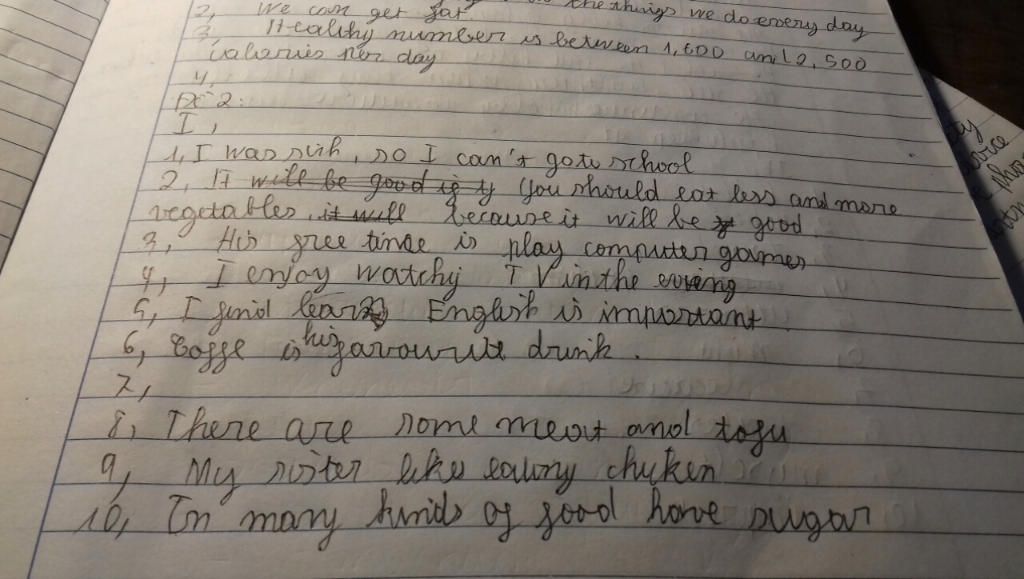 2, We can get fat the things we do every day
3, Healthy number is between 1,600 and 2,500
calories per day
4,
Ex 2:
I,
1, I was sik, so I can't go to school
2, It will be good is ty You should eat less and more
vegetables, it will because it will be good
3, His free time is play computer games
4, I enjoy watchy TV in the evering
5, I find learn English is important
6, Coffe is his favourite drink.
7,
8, There are some meat and tofu
9, My sister like eating chyken
10, In many kinds of food have sugar